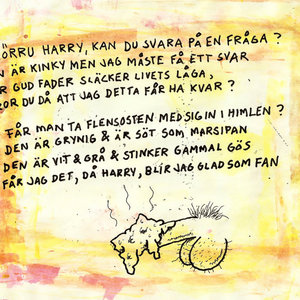 ÖRRU HARRY, KAN DU SVARA PÅ EN FRÅGA?
N ÄR KINKY MEN JAG MÅSTE FÅ ETT SVAR
R GUD FADER SLÄCKER LIVETS LÅGA,
ROR DU DÅ ATT JAG DETTA FÅR HA KVAR?
FÅR MAN TA FLENSOSTEN MED SIG IN I HIMLEN?
DEN ÄR GRYNIG & ÄR SÖT SOM MARSIPAN
DEN ÄR VIT & GRÅ & STINKER GAMMAL GÖS
FÅR JAG DET, DÅ HARRY, BLIR JAG GLAD SOM FAN